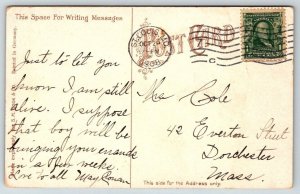 This Space For Writing Messages
POST CARD
Just to let you
know I am still
alive. I suppose
that boy will be
bringing your errands
in a few weeks.
Love to all May
Mrs Cole
42 Everton Street
Dorchester
Mass.
This side for the Address only.